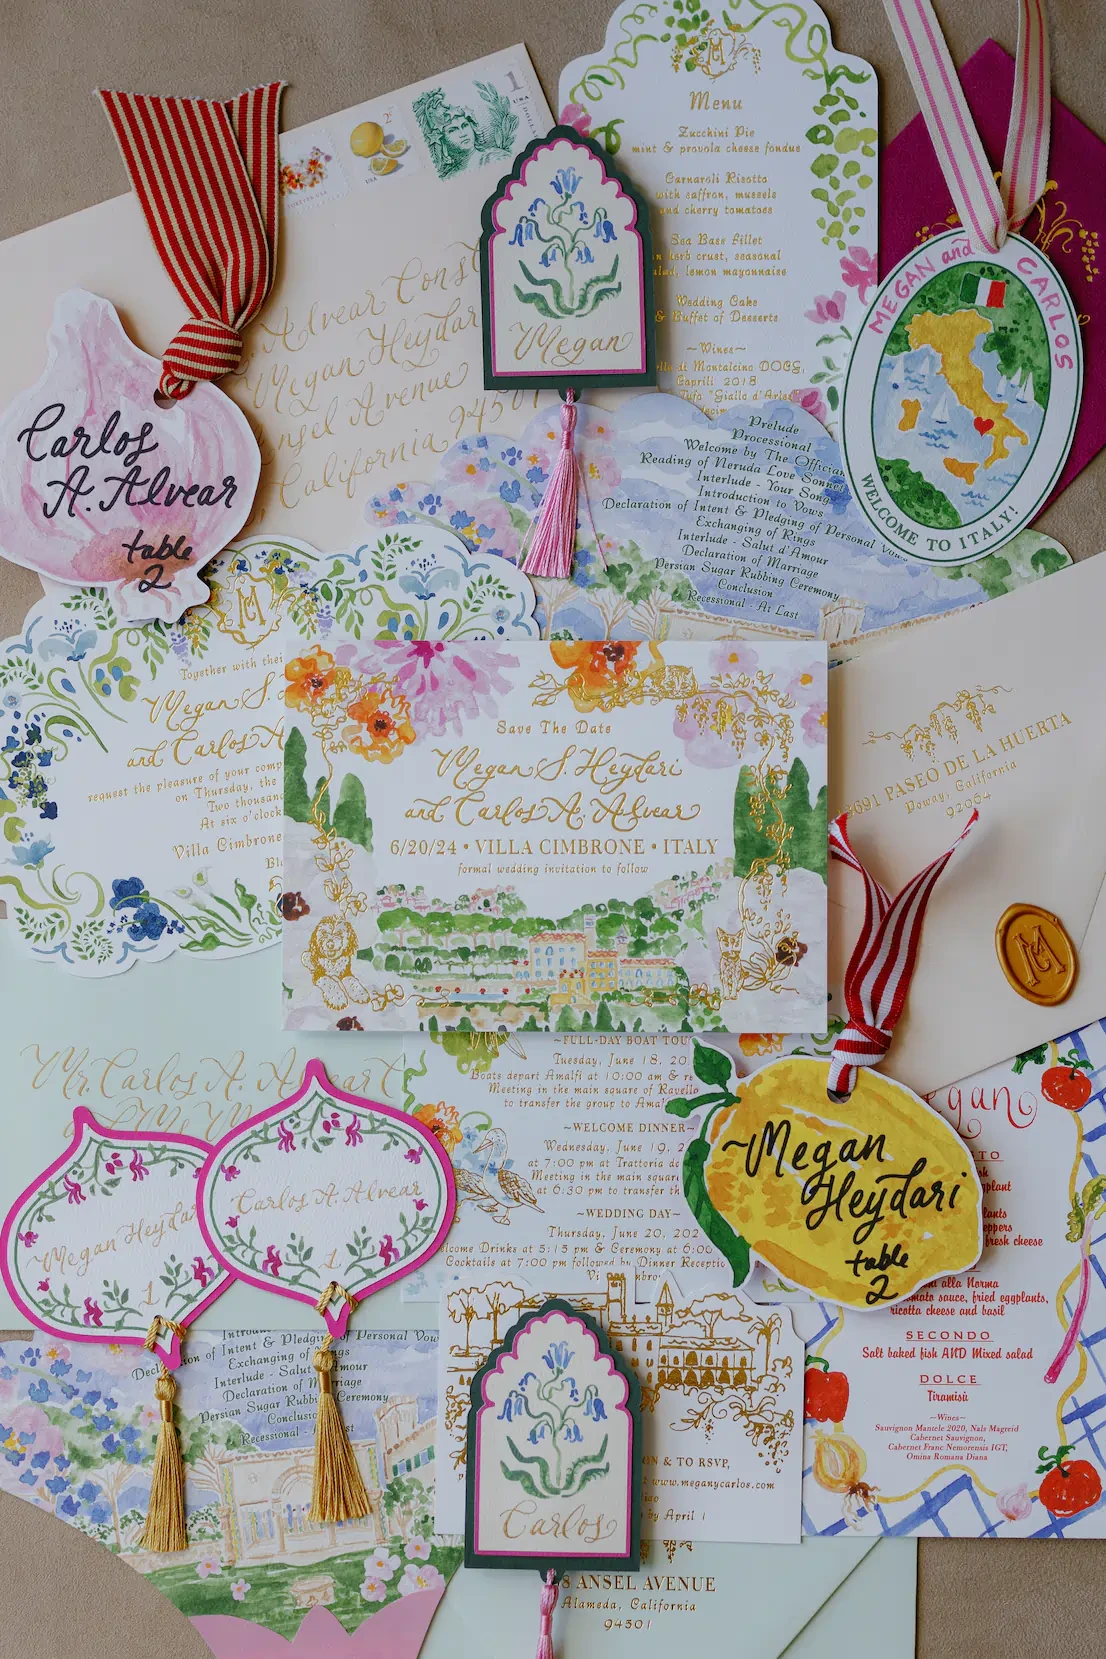 1
USA
2c
USA
FOREVER USA
M
Menu
Zucchini Pie
mint & provola cheese fondue
Carnaroli Risotto
with saffron, mussels
and cherry tomatoes
Sea Base Fillet
herb crust, seasonal
lemon mayonnaise
Wedding Cake
& Buffet of Desserts
~Wines~
di Montalcino DOCG,
Caprili 2018
MEGAN and CARLOS
WELCOME TO ITALY!
Megan
Alvear
Megan Heydar
Ansel Avenue
California 94501
Carlos
A. Alvear
table
2
Prelude
Processional
Welcome by The Officia
Reading of Neruda Love Sonne
Interlude - Your Song
Introduction to Vows
Declaration of Intent & Pledging of Personal Vows
Exchanging of Rings
Interlude - Salut d'Amour
Declaration of Marriage
Persian Sugar Rubbing Ceremony
Conclusion
Recessional - At Last
M
Together with thei
Megan S.
and Carlos A
request the pleasure of your comp
on Thursday, the
Two thousan
At six o'clock
Villa Cimbrone
Save The Date
Megan S. Heydari
and Carlos A. Alvear
6/20/24 • VILLA CIMBRONE • ITALY
formal wedding invitation to follow
3691 PASEO DE LA HUERTA
Poway, California
92064
M
Mr. Carlos A. Alvear
~FULL-DAY BOAT TOU
Tuesday, June 18, 20
Boats depart Amalfi at 10:00 am & re
Meeting in the main square of Ravello
to transfer the group to Amal
~WELCOME DINNER~
Wednesday, June 19, 2
at 7:00 pm at Trattoria da
Meeting in the main square
at 6:30 pm to transfer th
~WEDDING DAY~
Thursday, June 20, 202
elcome Drinks at 5:15 pm & Ceremony at 6:00
Cocktails at 7:00 pm followed by Dinner Receptio
~Megan
Heydari
table
2
egan
TO
sh
gplant
lants
eppers
fresh cheese
alla Norma
tomato sauce, fried eggplants,
ricotta cheese and basil
SECONDO
Salt baked fish AND Mixed salad
DOLCE
Tiramisù
~Wines~
Sauvignon Mantele 2020, Nals Magreid
Cabernet Sauvignon,
Cabernet Franc Nemorensis IGT,
Omina Romana Diana
Megan Heydar
1
Carlos A. Alvear
1
Introdu
Declaration of Intent & Pledging of Personal Vow
Exchanging of Rings
Interlude - Salut d'Amour
Declaration of Marriage
Persian Sugar Rubbing Ceremony
Conclusio
Recessional - st
N & TO RSVP,
www.meganycarlos.com
by April 1
Carlos
8 ANSEL AVENUE
Alameda, California
94501